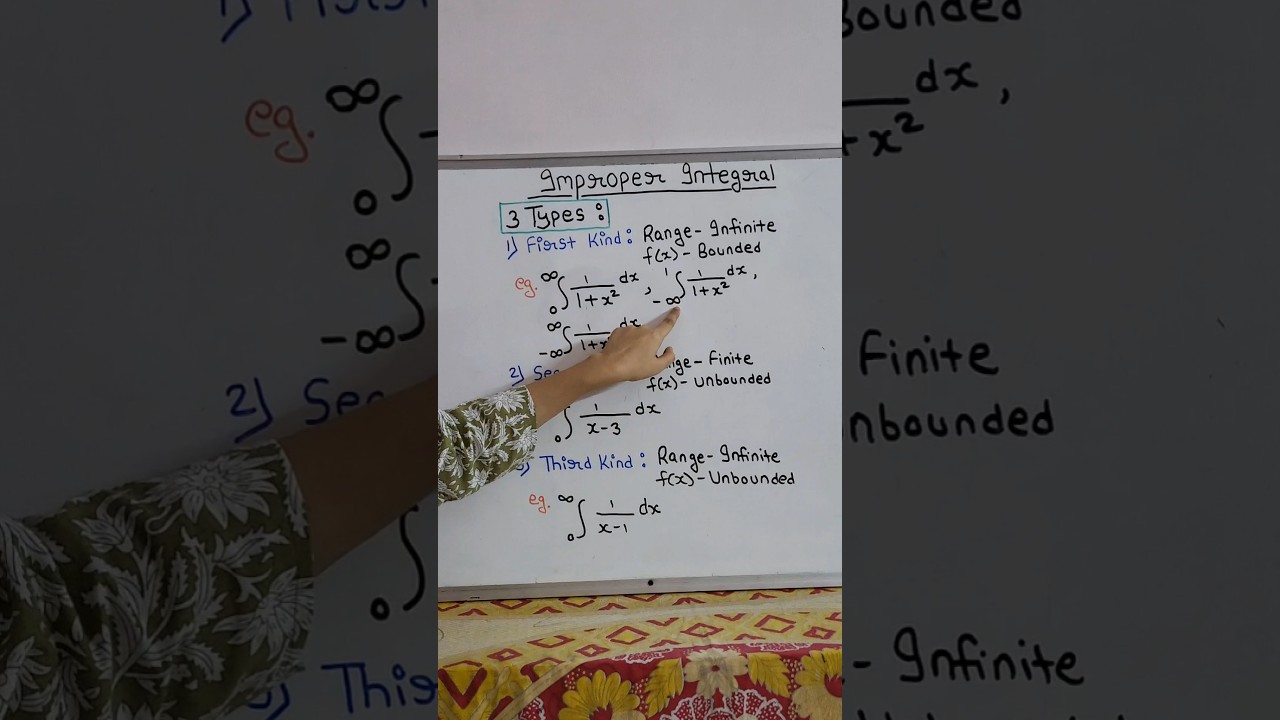 Improper Integral
3 Types :
1) First Kind : Range - Infinite
f(x) - Bounded
eg. ∞∫0 1/(1+x²) dx , 1∫-∞ 1/(1+x²) dx ,
∞∫-∞ 1/(1+x dx
2) Se nge - Finite
f(x) - Unbounded
∫0 1/(x-3) dx
3) Third Kind : Range - Infinite
f(x) - Unbounded
eg. ∞∫0 1/(x-1) dx